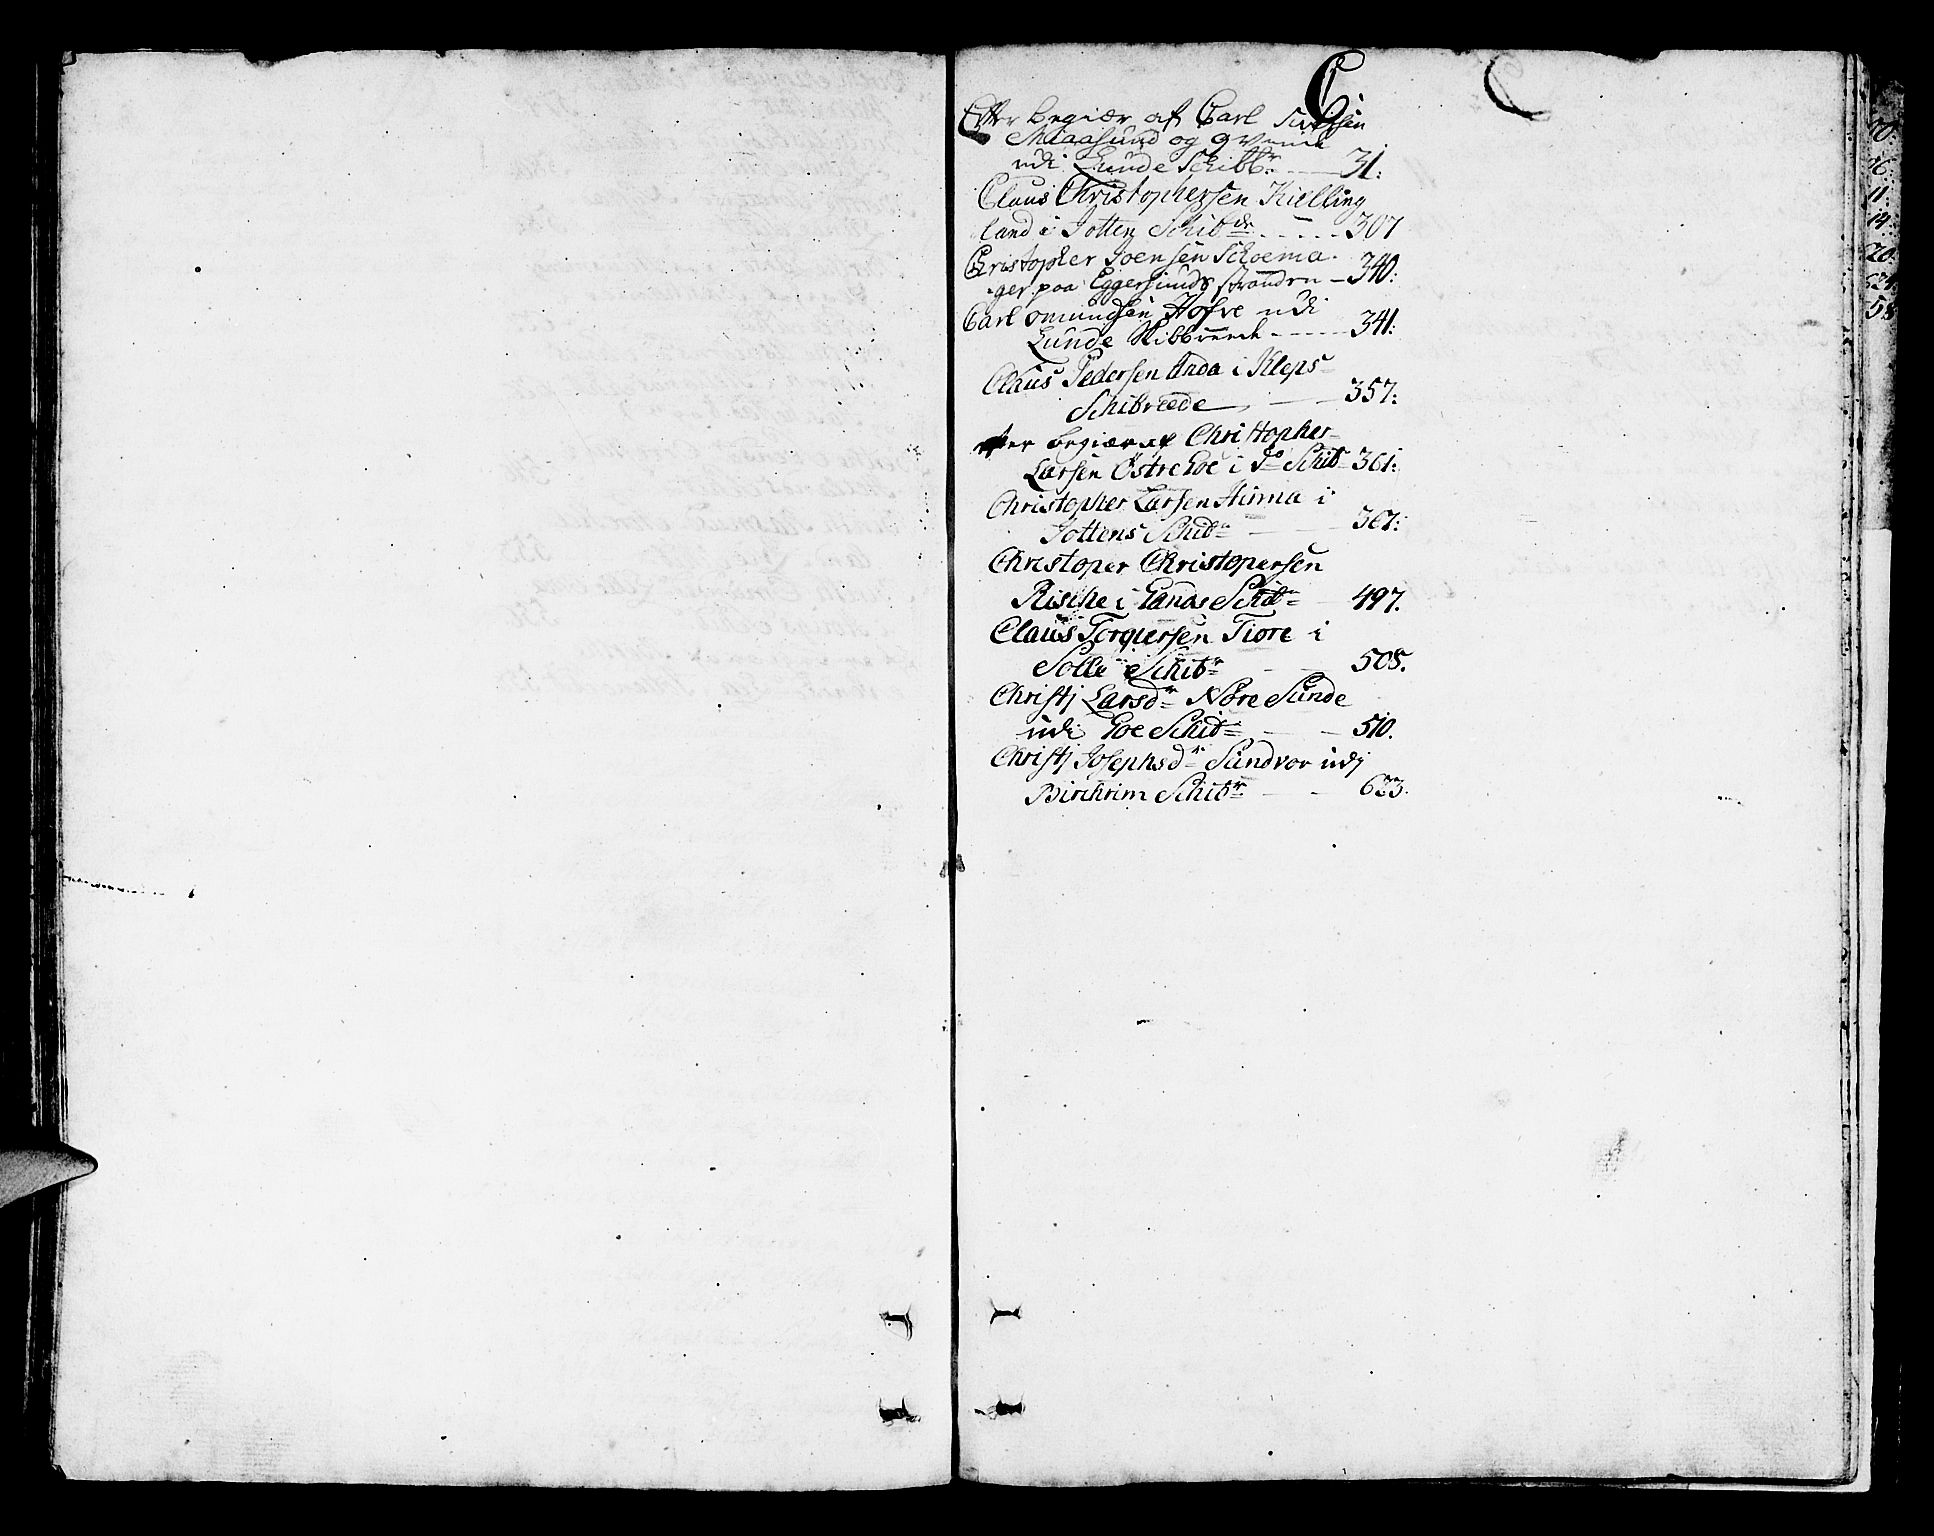 C:
Efter begiær af Carl Sivertsen
Miaasund og qvinde
udi Lunde Schibbr. 31:
Claus Christophersen Kielling
land i Jotten Schibde 307
Christopher Joensen Schoema
ger paa Eggersunds stranden 340:
Carl omundsen Hofve udi
Lunde Skibbreede 341:
Claus Pedersen Anda i Kleps
Schibreede 357:
efter begiær af Christopher
Larsen Østre Goe i Do Schib 361:
Christopher Larsen Hinna i
Jottens Schibr 367:
Christoper Christopersen
Rische i Gands Schibr 497.
Claus Torgiersen Tiore i
Solle Schibr 505.
Christj Larsdr Nøre Sunde
udi Goe Schibr 510.
Christj Josephsdr Sundvor udj
Birchrim Schibr 623.